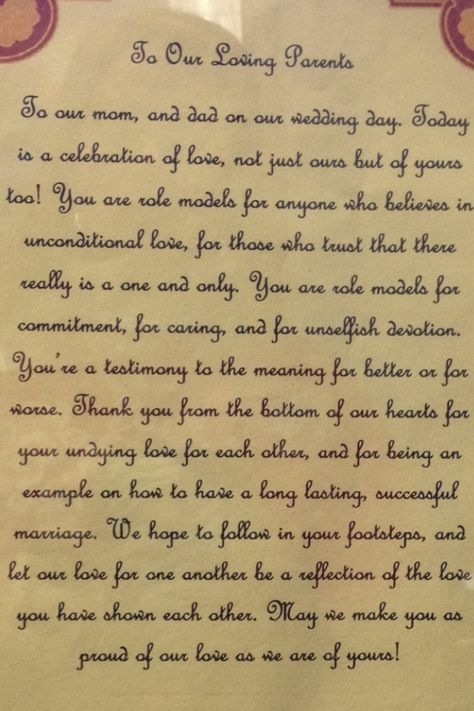 To Our Loving Parents
To our mom, and dad on our wedding day. Today
is a celebration of love, not just ours but of yours
too! You are role models for anyone who believes in
unconditional love, for those who trust that there
really is a one and only. You are role models for
commitment, for caring, and for unselfish devotion.
You're a testimony to the meaning for better or for
worse. Thank you from the bottom of our hearts for
your undying love for each other, and for being an
example on how to have a long lasting, successful
marriage. We hope to follow in your footsteps, and
let our love for one another be a reflection of the love
you have shown each other. May we make you as
proud of our love as we are of yours!